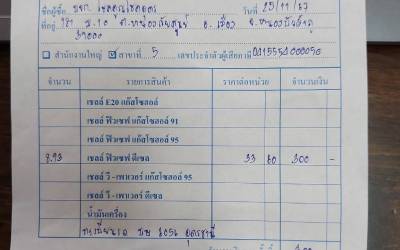 ชื่อผู้ซื้อ หจก. วันที่ 25/11/67
ที่อยู่ 181 ม.10 ต.หนองภัยศูนย์ อ.เมือง จ.หนองบัวลำภู
39000
สำนักงานใหญ่ ☑ สาขาที่ 5 เลขประจำตัวผู้เสียภาษี
จำนวน รายการสินค้า ราคาต่อหน่วย จำนวนเงิน
เชลล์ E20 แก๊สโซฮอล์
เชลล์ ฟิวเซฟ แก๊สโซฮอล์ 91
เชลล์ ฟิวเซฟ แก๊สโซฮอล์ 95
8.93 เชลล์ ฟิวเซฟ ดีเซล 33 60 300 -
เชลล์ วี - เพาเวอร์ แก๊สโซฮอล์ 95
เชลล์ วี - เพาเวอร์ ดีเซล
น้ำมันเครื่อง
ทะเบียนรถ 8056 อุดรธานี